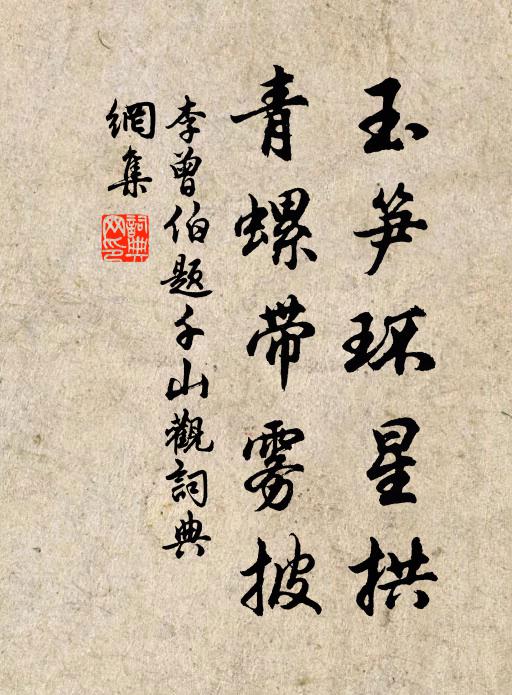 玉笋环星拱
青螺带雾披
李曾伯题千山觀詞典
網集
詞典网印